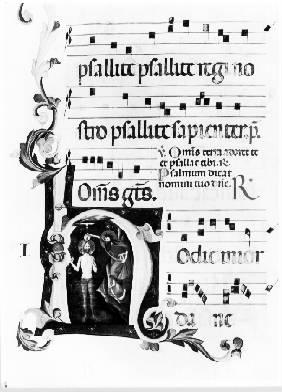 psallite psallite regi no
stro psallite sapienter. p.
V. Om̄s terra adoret te
et psallat tibi. R.
Psalmum dicat
nomini tuo dn̄e. R
Om̄s gēts.
Hodie in ior
dane